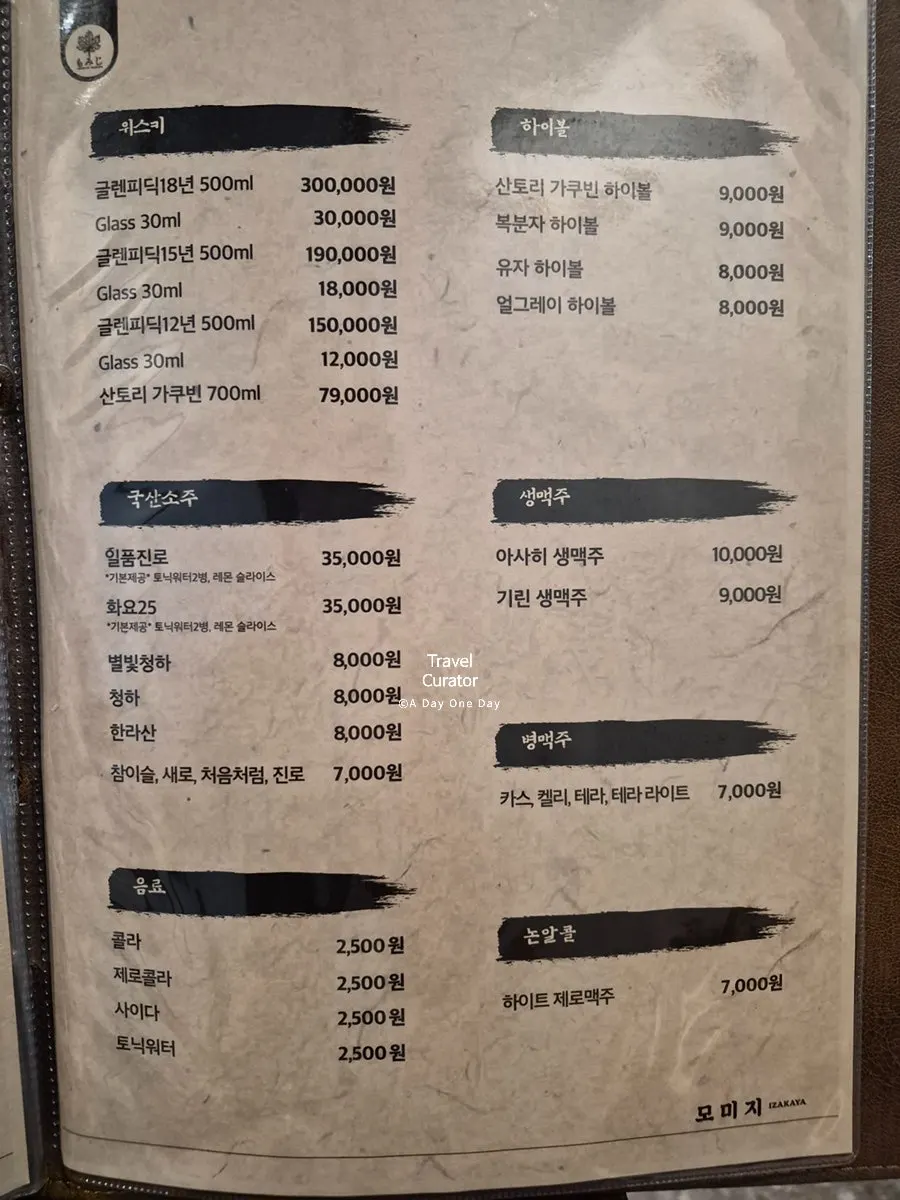 위스키
글렌피딕18년 500ml 300,000원
Glass 30ml 30,000원
글렌피딕15년 500ml 190,000원
Glass 30ml 18,000원
글렌피딕12년 500ml 150,000원
Glass 30ml 12,000원
산토리 가쿠빈 700ml 79,000원
하이볼
산토리 가쿠빈 하이볼 9,000원
복분자 하이볼 9,000원
유자 하이볼 8,000원
얼그레이 하이볼 8,000원
국산소주
일품진로 35,000원
*기본제공* 토닉워터2병, 레몬 슬라이스
화요25 35,000원
*기본제공* 토닉워터2병, 레몬 슬라이스
별빛청하 8,000원
청하 8,000원
한라산 8,000원
참이슬, 새로, 처음처럼, 진로 7,000원
생맥주
아사히 생맥주 10,000원
기린 생맥주 9,000원
Travel
Curator
©A Day One Day
병맥주
카스, 켈리, 테라, 테라 라이트 7,000원
음료
콜라 2,500원
제로콜라 2,500원
사이다 2,500원
토닉워터 2,500원
논알콜
하이트 제로맥주 7,000원
모미지 IZAKAYA